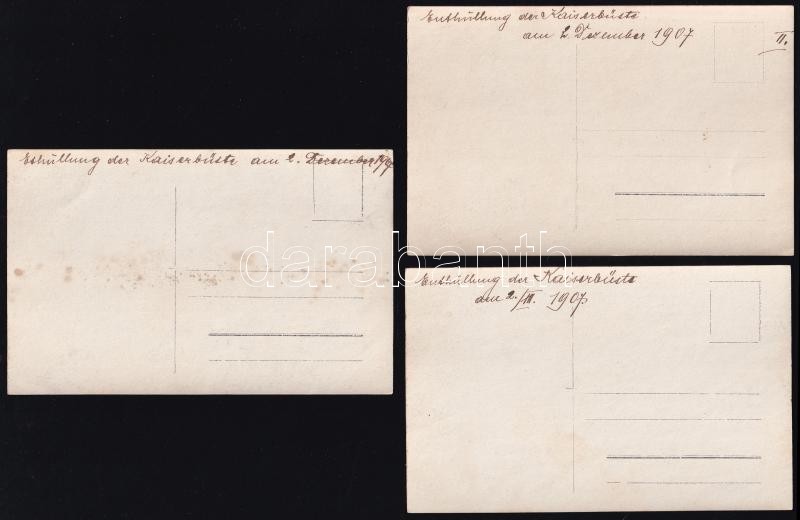 Enthüllung der Kaiserbüste
am 2. Dezember 1907
II.
Ethüllung der Kaiserbüste am 2. Dezember 1907
darabanth
Enthüllung der Kaiserbüste
am 2./III. 1907